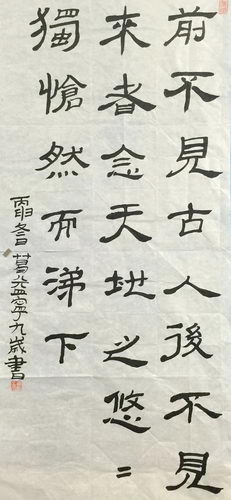 前不見古人後不見
來者念天地之悠〻
獨愴然而涕下
葛益寧九歲書